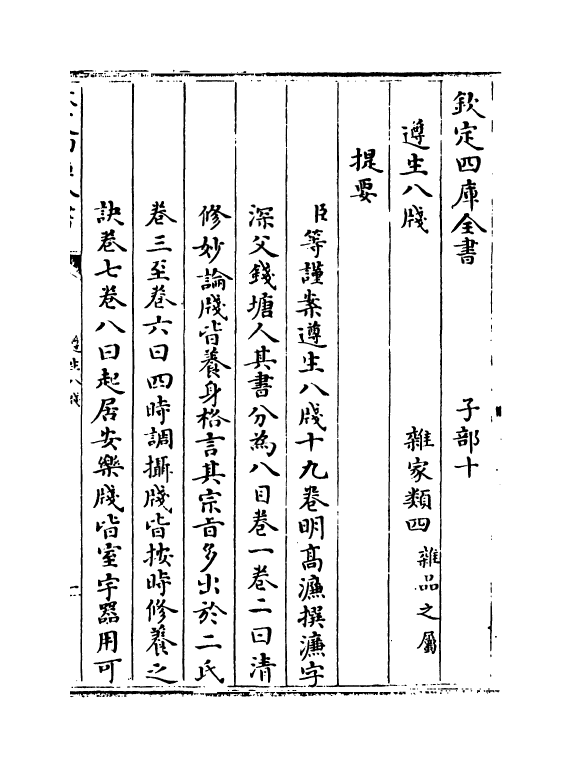 欽定四庫全書 子部十
遵生八牋 雜家類四雜品之屬
提要
臣等謹案遵生八牋十九卷明高濂撰濂字
深父錢塘人其書分為八目卷一卷二曰清
修妙論牋皆養身格言其宗旨多出於二氏
卷三至卷六曰四時調攝牋皆按時修養之
訣卷七卷八曰起居安樂牋皆室宇器用可
遵生八牋
一